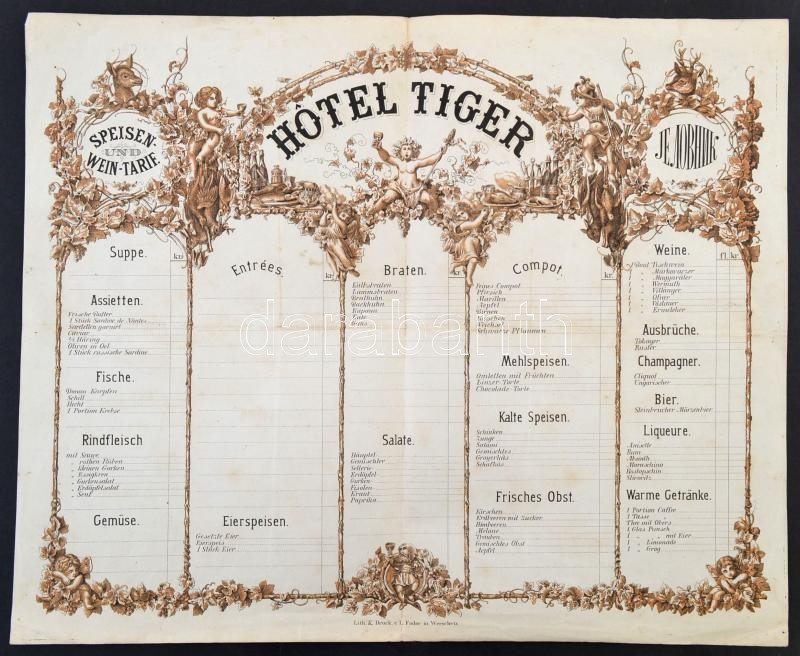 HÔTEL TIGER
SPEISEN-
UND
WEIN-TARIF.
ЈЕЛОВНИК
Suppe.
kr.
Assietten.
Frische Butter
1 Stück Sardine de Nantes
Sardellen garnirt
Caviar
½ Häring
Oliven in Oel
1 Stück russische Sardine
Fische.
Donau Karpfen
Schill
Hecht
1 Portion Krebse
Rindfleisch
mit Sauce
„ rothen Rüben
„ kleinen Gurken
„ Essigkren
„ Gurkensalat
„ Erdäpfelsalat
„ Senf
Gemüse.
Entrées.
kr.
Eierspeisen.
Gesetzte Eier
Eierspeis
1 Stück Eier
Braten.
kr.
Kalbsbraten
Lammsbraten
Brathuhn
Backhuhn
Kapaun
Ente
Gans
Salate.
Häuptel
Gemischter
Sellerie
Erdäpfel
Gurken
Fisolen
Kraut
Paprika
Compot.
kr.
Feines Compot
Pfirsich
Marillen
Aepfel
Birnen
Kirschen
Weichsel
Schwarze Pflaumen
Mehlspeisen.
Omletten mit Früchten
Linzer-Torte
Chocolade-Torte
Kalte Speisen.
Schinken
Zunge
Salami
Gemischtes
Groyerkäs
Schafkäs
Frisches Obst.
Kirschen
Erdbeeren mit Zucker
Himbeeren
Melone
Trauben
Gemischtes Obst
Aepfel
Weine.
fl. kr.
Tischwein
Magyarater
Wermuth
Villanyer
Ofner
Vöslauer
Ermeleker
Ausbrüche.
Tokayer
Ruster
Champagner.
Cliquot
Ungarischer
Bier.
Steinbrucher Märzenbier
Liqueure.
Anisette
Rum
Absinth
Maraschino
Rostopschin
Sliwowitz
Warme Getränke.
1 Portion Caffée
1 Tasse
Thee mit Obers
1 Glas Punsch
1 „ „ mit Eier
1 „ Limonade
1 „ Grog
darabanth
Lith. K. Druck. v. L. Fodor in Werschetz.